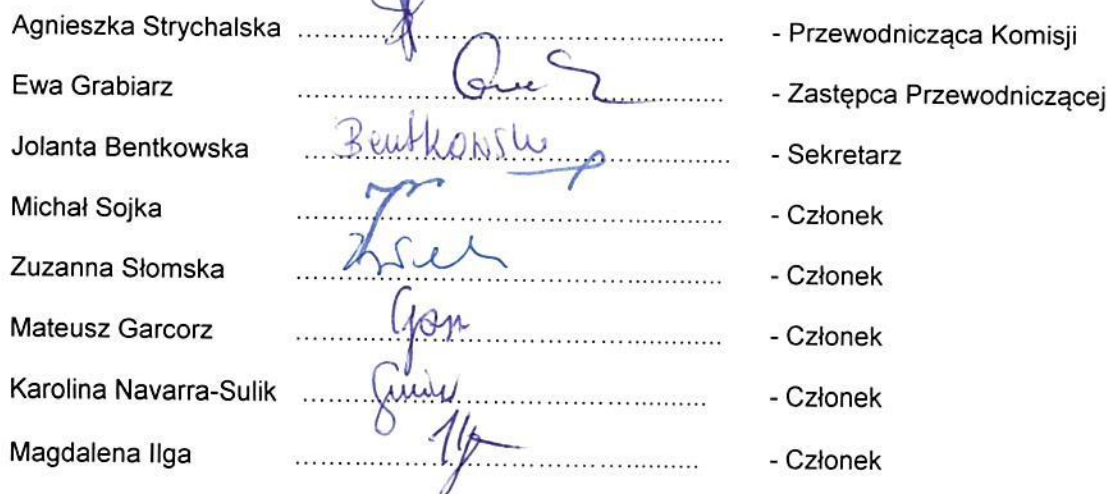 Agnieszka Strychalska ........................ - Przewodnicząca Komisji
Ewa Grabiarz ........................ - Zastępca Przewodniczącej
Jolanta Bentkowska ........................ Bentkowska - Sekretarz
Michał Sojka ........................ - Członek
Zuzanna Słomska ........................ - Członek
Mateusz Garcorz ........................ - Członek
Karolina Navarra-Sulik ........................ - Członek
Magdalena Ilga ........................ - Członek